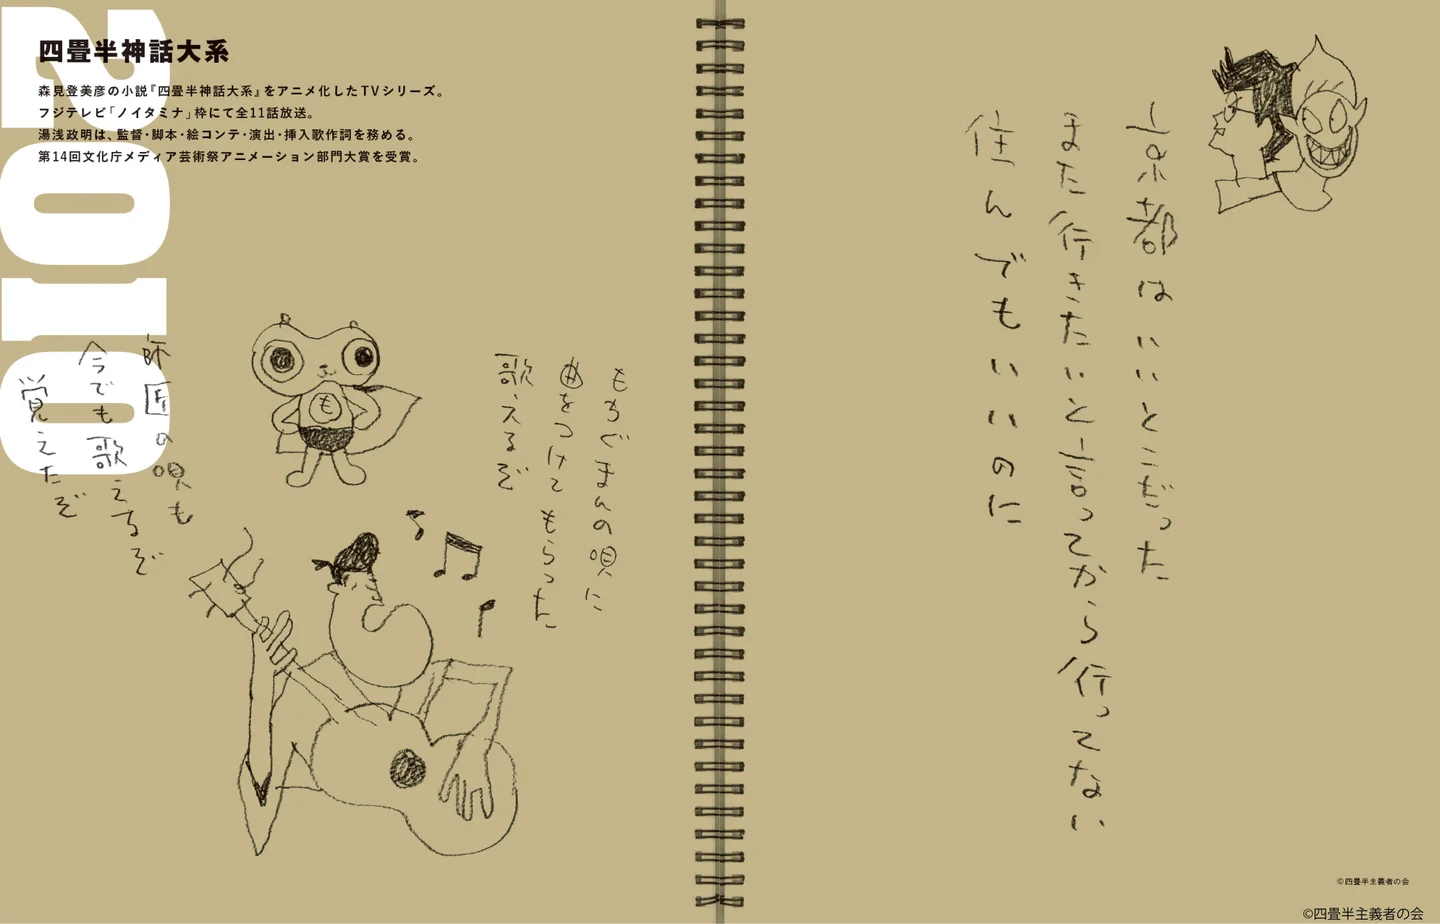 2010
四畳半神話大系
森見登美彦の小説『四畳半神話大系』をアニメ化したTVシリーズ。
フジテレビ「ノイタミナ」枠にて全11話放送。
湯浅政明は、監督・脚本・絵コンテ・演出・挿入歌作詞を務める。
第14回文化庁メディア芸術祭アニメーション部門大賞を受賞。
もちぐまんの唄に
曲をつけてもらった
歌えるぞ
も
師匠の唄も
今でも歌えるぞ
覚えたぞ
京都はいいとこだった
また行きたいと言ってから行ってない
住んでもいいのに
©四畳半主義者の会
©四畳半主義者の会